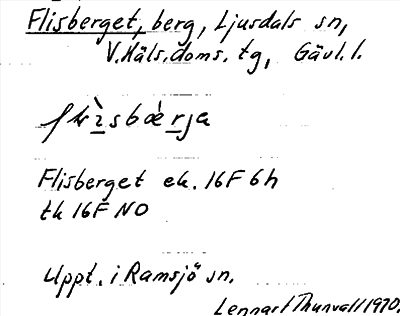 Flisberget, berg, Ljusdals sn,
V.Häls.doms. tg, Gävl. l.
Flisberget ek. 16F 6h
tk 16F NO
Uppt. i Ramsjö sn.
Lennart Thunvall 1970.